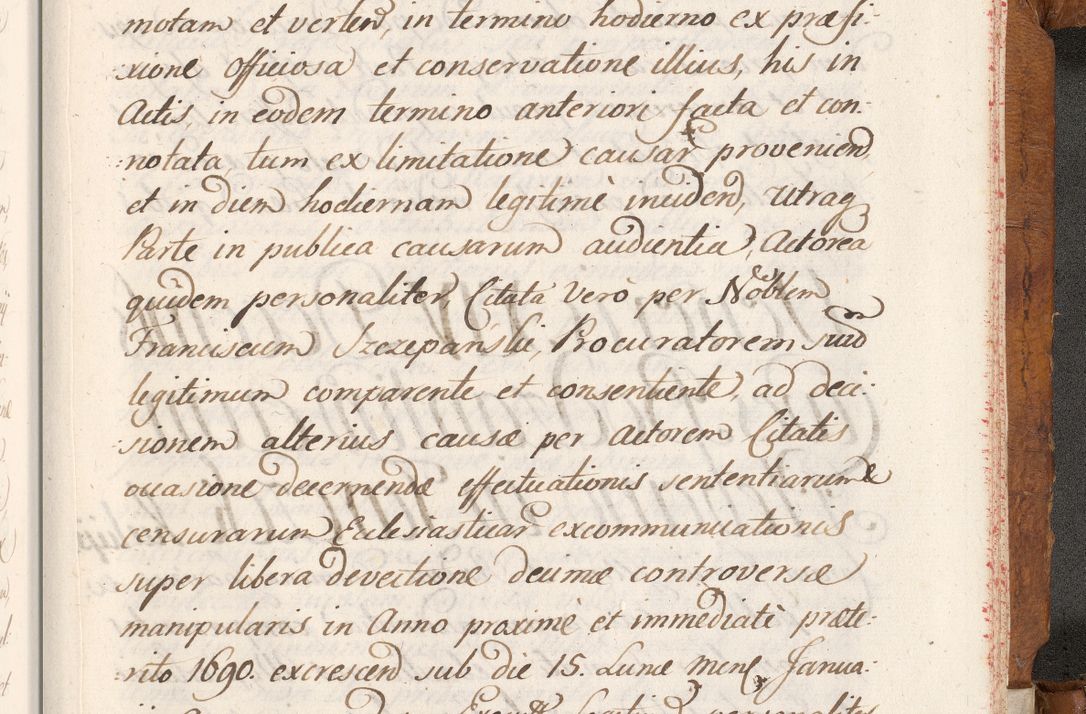 motam et verten, in termino hodierno ex præfi-
xione officiosa et conservatione illius, his in
Actis, in eodem termino anteriori facta et con-
notata, tum ex limitatione causar provenien,
et in diem hodiernam legitimè inciden, utraq
Parte in publica causarum audientia, Actorea
quidem personaliter, Citata verò per Noblem
Franciscum Szczepański, Procuratorem suũ
legitimum comparente et consentiente, ad deci-
sionem alterius causæ per Actorem Citatis
occasione decernendæ effectuationis sententiarum &
censurarum Ecclesiasticar excommunicationis
super libera devectione decimæ controversæ
manipularis in Anno proximè et immediatè præte-
rito 1690. excrescen sub die 15. Lunæ Mens Janua-
personaliter